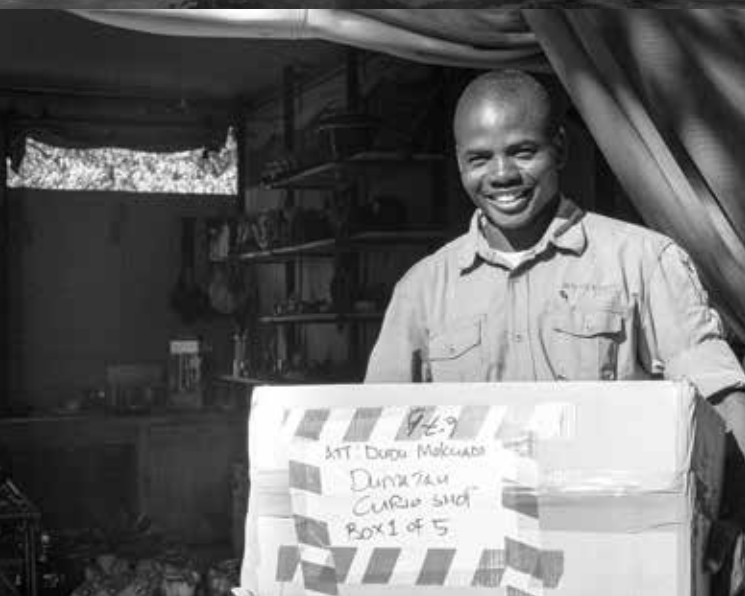 9.7.9
ATT: DUDU
DUMATAU
CURIO SHOP
BOX 1 of 5